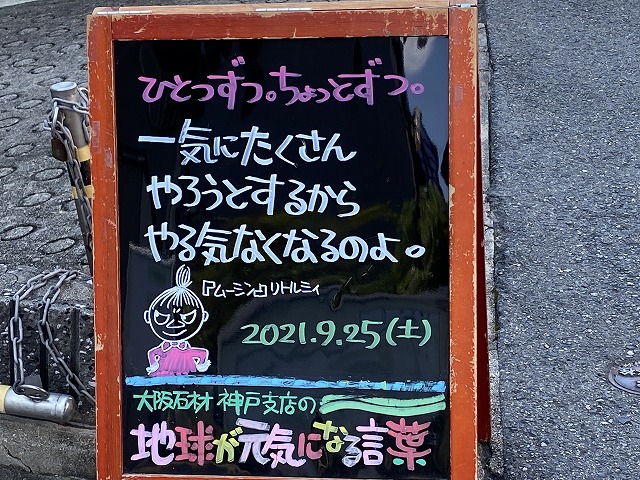 ひとつずつ。ちょっとずつ。
一気にたくさん
やろうとするから
やる気なくなるのよ。
『ムーミン』リトルミィ
2021.9.25(土)
大阪石材 神戸支店の
地球が元気になる言葉